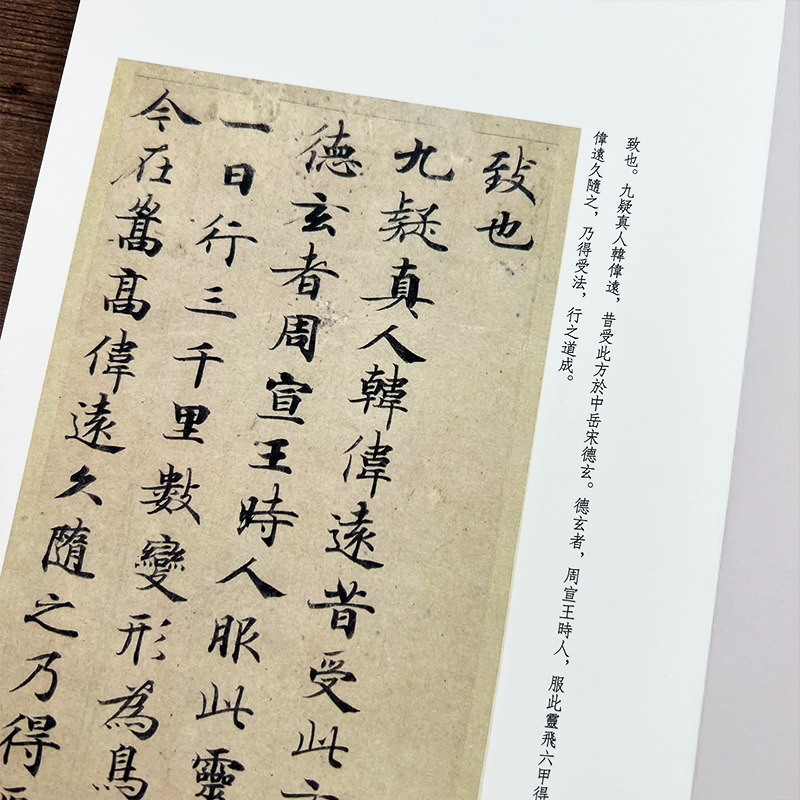 致也。九疑真人韓偉遠，昔受此方於中岳宋德玄。德玄者，周宣王時人，服此靈飛六甲得
偉遠久隨之，乃得受法，行之道成。
致也
九疑真人韓偉遠昔受此方
德玄者周宣王時人服此靈
一日行三千里數變形為鳥
今在嵩高偉遠久隨之乃得